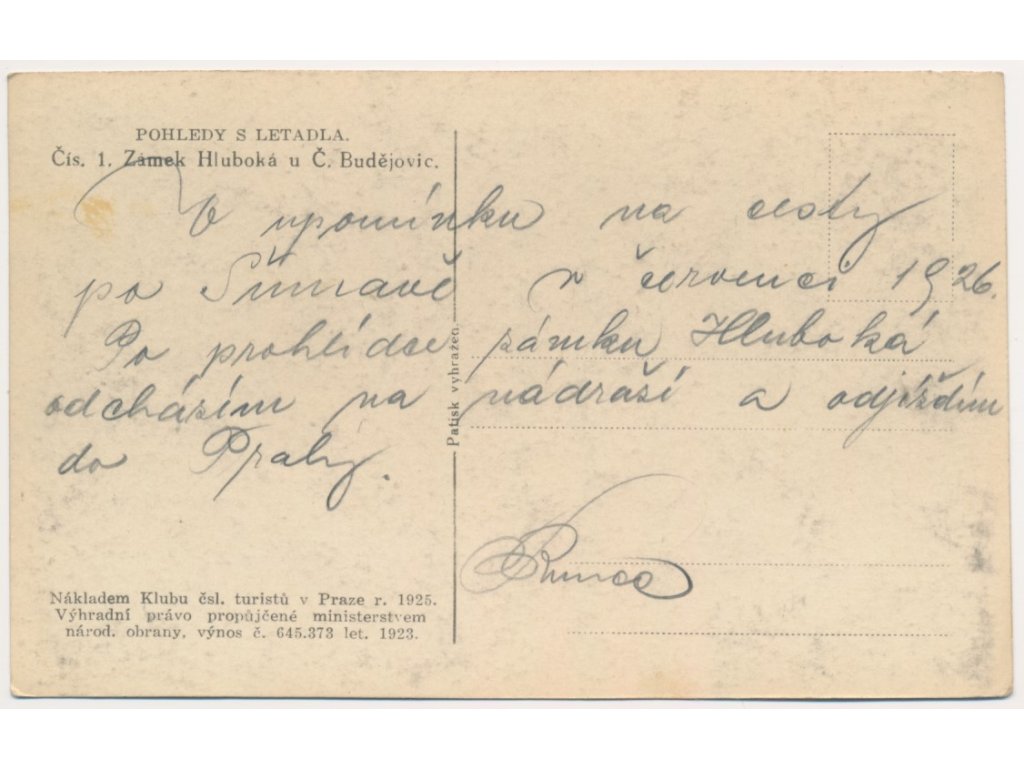 POHLEDY S LETADLA.
Čís. 1. Zámek Hluboká u Č. Budějovic.
V upomínku na cesty
po Šumavě v červenci 1926.
Po prohlídce zámku Hluboká
odcházím na nádraží a odjíždím
do Prahy.
Patisk vyhražen.
Nákladem Klubu čsl. turistů v Praze r. 1925.
Výhradní právo propůjčené ministerstvem
národ. obrany, výnos č. 645.373 let. 1923.